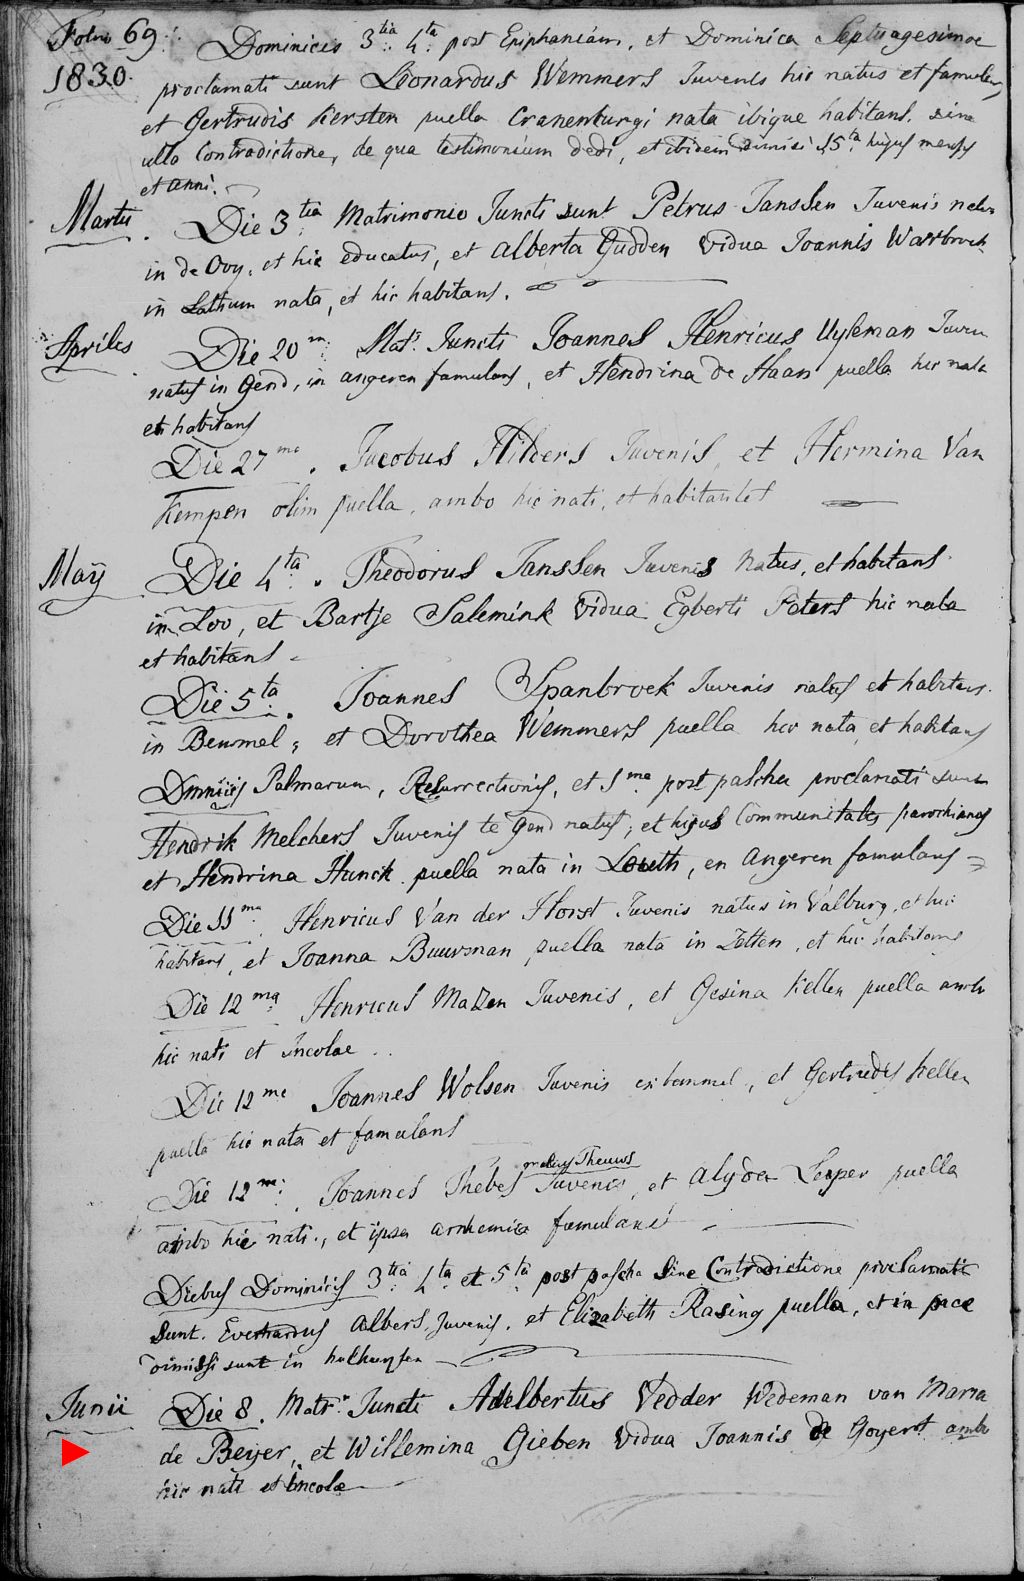 Folio 69
1830.
Dominicis 3tia 4ta post Epiphaniam, et Dominica Septuagesimae
proclamati sunt Leonardus Wemmers Juvenis hic natus et famulans
et Gertrudis Kersten puella Cranenburgi nata ibique habitans. sine
ulla Contradictione, de qua testimonium dedi, et ibidem dimisi 15ta hujus mensis
et anni.
Martii
Die 3tia Matrimonio Juncti sunt Petrus Janssen Juvenis natus
in de Ooy, et hic educatus, et Alberta Gudden Vidua Joannis
in Lathum nata, et hic habitans.
Aprilis
Die 20ma Mat. Juncti Joannes Henricus Uyleman Juven
natus in Gend, in angeren famulans, et Hendrina de Haan puella hic nata
et habitans
Die 27ma. Jacobus Hilders Juvenis, et Hermina Van
Kempen olim puella, ambo hic nati, et habitantes
Maÿ
Die 4ta. Theodorus Janssen Juvenis Natus, et habitans
in Loo, et Bartje Salemink Vidua Egberti Peters hic nata
et habitans
Die 5ta. Joannes Spanbroek Juvenis natus et habitans
in Bemmel, et Dorothea Wemmers puella hic nata et habitans
Dominicis Palmarum, Resurrectionis, et 1ma post pascha proclamati sunt
Hendrik Melchers Juvenis te Gend natus, et hujus Communitatis parochianus
et Hendrina Hunck puella nata in Loweth, en Angeren famulans
Die 11ma Henricus Van der Horst Juvenis natus in Valburg, et hic
habitans, et Joanna Buurman puella nata in Zetten, et hic habitans
Die 12ma Henricus Mazen Juvenis, et Gesina Kellen puella ambo
hic nati et Incolae
Die 12me Joannes Wolsen Juvenis ex bemmel, et Gertrudis Kellen
puella hic nata et famulans
melius Theuws
Die 12ma. Joannes Thebes Juvenis, et Alyda Lesper puella
ambo hic nati, et ipsa arnhemiae famulans
Diebus Dominicis 3tia 4ta et 5ta post pascha Sine Contradictione proclamati
Sunt. Everhardus Albers Juvenis, et Elizabeth Rasing puella, et in pace
dimissi sunt in hulhuysen
Junii
Die 8. Matr. Juncti Adelbertus Vedder Wedeman van Maria
de Beyer, et Willemina Gieben Vidua Joannis de Goyert ambo
hic nati et Incolae